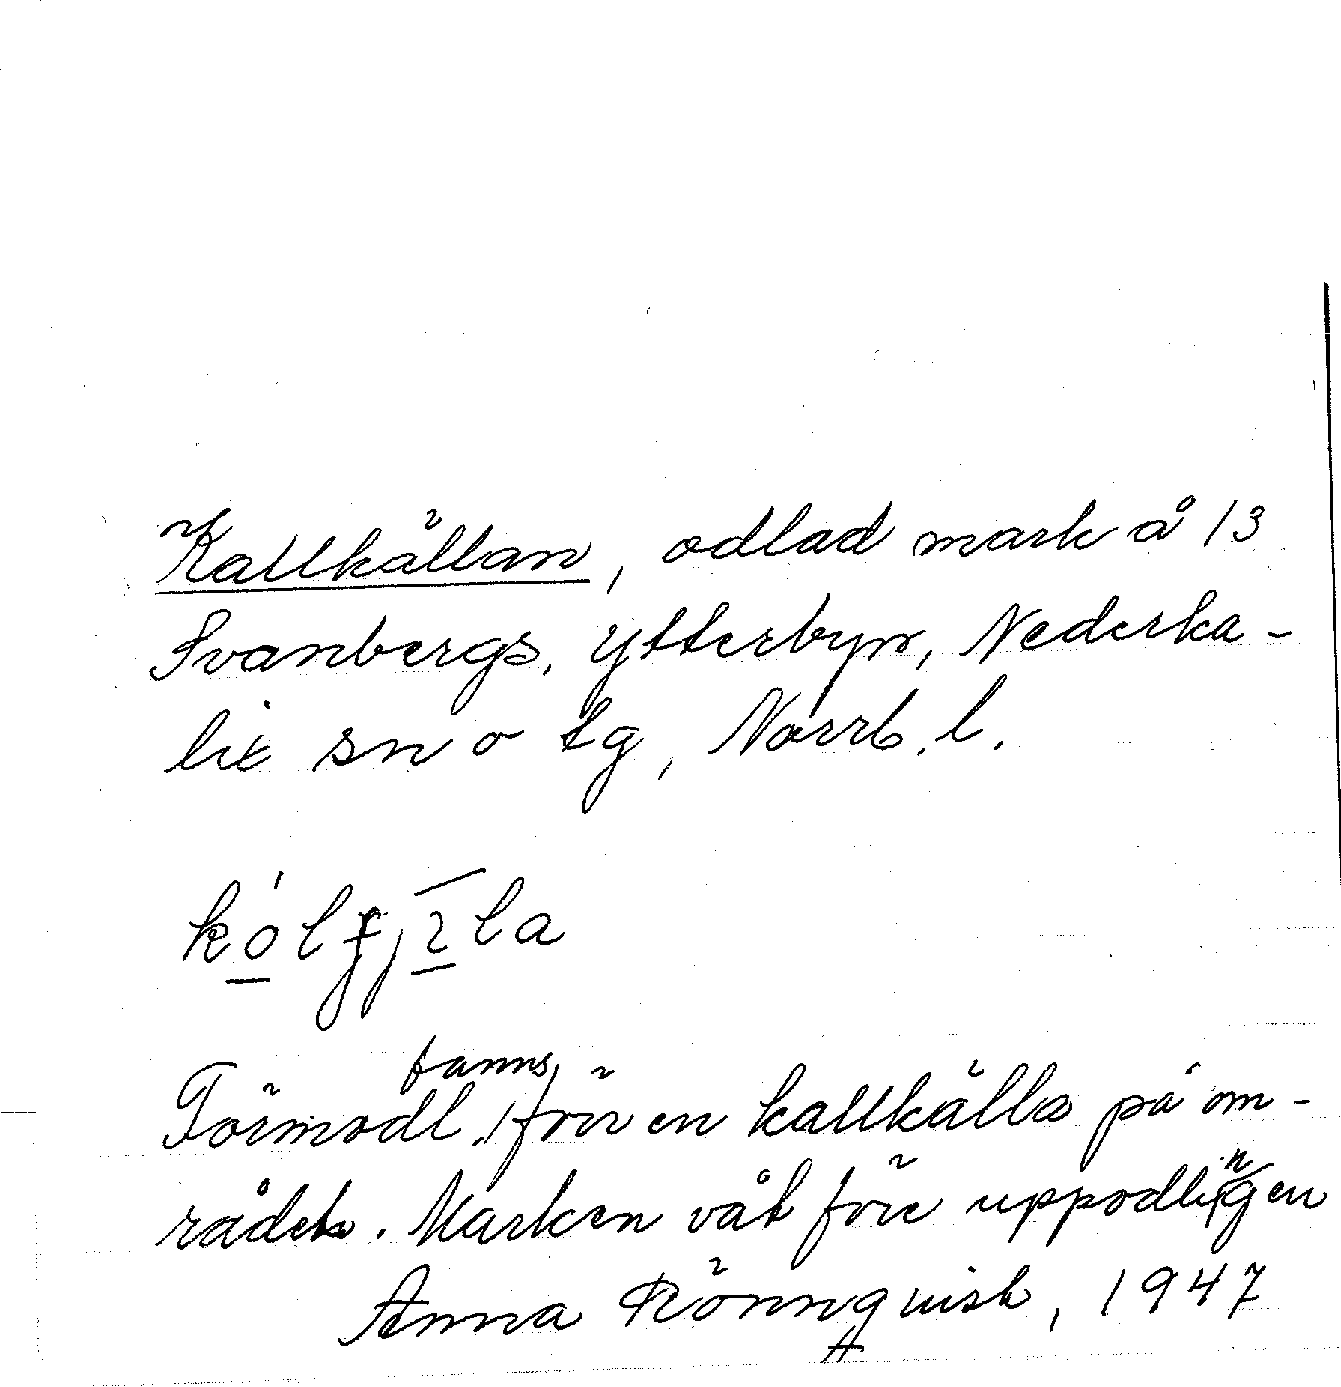 Kallkällan, odlad mark å 13
Svanbergs, Ytterbyn, Nederka-
lix sn o tg, Norrb. l.
Förmodl. fanns förr en kallkälla på om-
rådet. Marken våt före uppodlingen
Anna Rönnquist, 1947